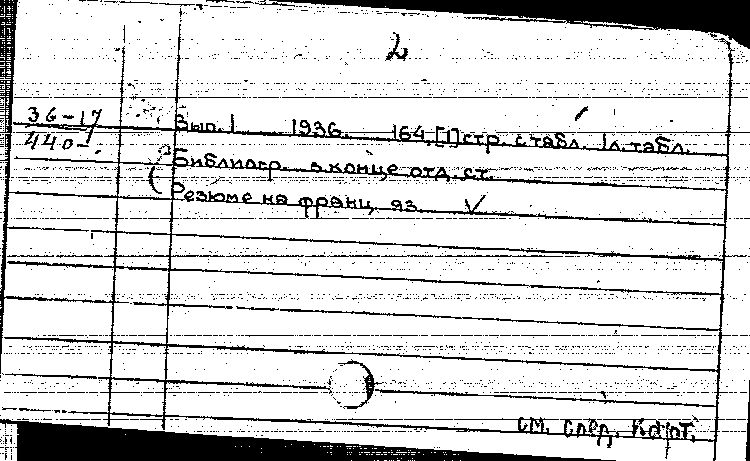 2
36-17
440-
Вып. 1 1936. 164,[1]стр. с табл. 1л. табл.
Библиогр. в конце отд. ст.
Резюме на франц. яз. √
см. след. карт.